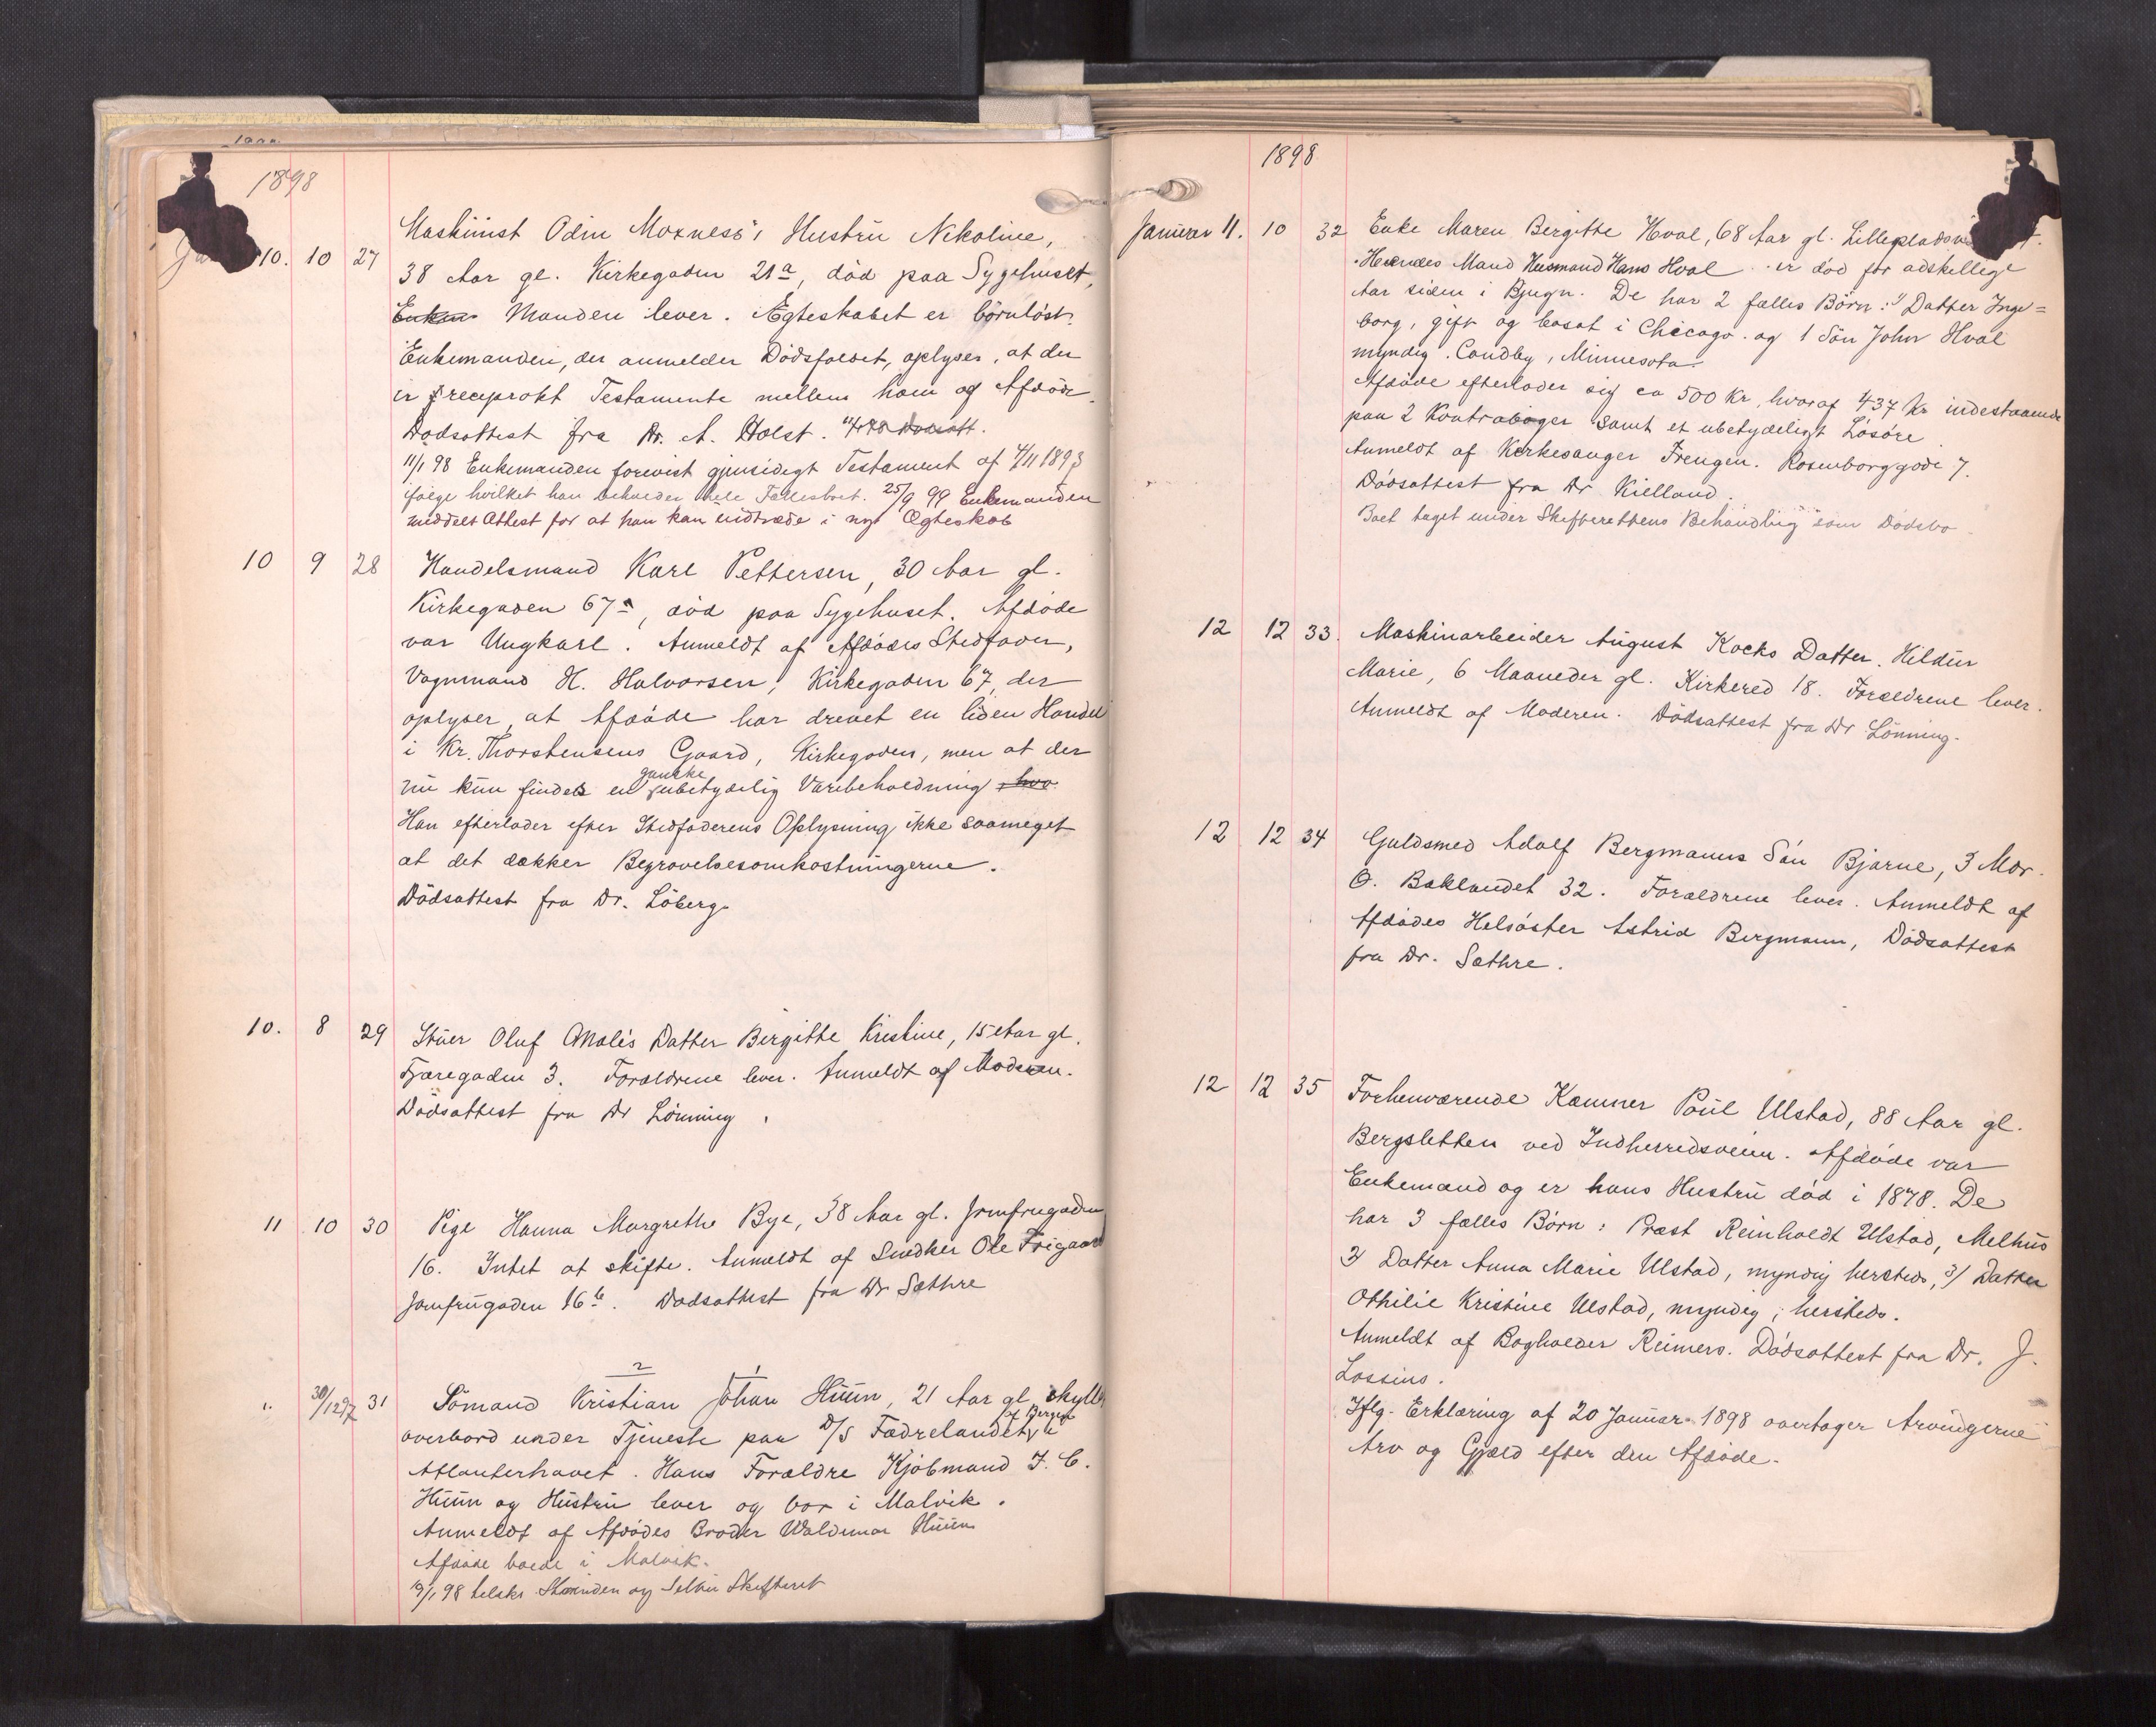 1898
10. 10 27 Maskinist Odin Moxness's Hustru Nikoline,
38 Aar gl. Kirkegaden 21a, død paa Sygehuset,
Enken Manden lever. Ægteskabet er børnløst.
Enkemanden, der anmelder Dødsfaldet, oplyser, at der
er reciprokt Testamente mellem ham og Afdøde.
Dødsattest fra Dr. A. Holst.
11/1 98 Enkemanden forevist gjensidigt Testament af 4/11 1893
ifølge hvilket han beholder hele Fællesboet. 25/9 99 Enkemanden
meddelt Attest for at han kan indtræde i nyt Ægteskab
10 9 28 Handelsmand Karl Pettersen, 30 Aar gl.
Kirkegaden 67a, død paa Sygehuset. Afdøde
var Ungkarl. Anmeldt af Afdødes Stedfader,
Vognmand H. Halvorsen, Kirkegaden 67, der
oplyser, at Afdøde har drevet en liden Handel
i Kr. Thorstensens Gaard, Kirkegaden, men at der
nu kun findes en ganske ubetydelig Varebeholdning, hvo
Han efterlader efter Stedfaderens Oplysning ikke saameget
at det dækker Begravelsesomkostningerne.
Dødsattest fra Dr. Løberg.
10. 8 29 Stuer Oluf Moli's Datter Birgitte Kristine, 15 Aar gl.
Fjæregaden 3. Forældrene lever. Anmeldt af Moderen.
Dødsattest fra Dr Lønning.
11 10 30 Pige Hanna Margrethe Bye, 38 Aar gl. Jomfrugaden
16. Intet at skifte. Anmeldt af Snedker Ole Frigaard
Jomfrugaden 16b. Dødsattest fra Dr Sæthre
2 1
30/12 97 31 Sømand Kristian Johan Huun, 21 Aar gl. skyllet
overbord under Tjeneste paa D/S Fædrelandet af Bergen i
Atlanterhavet. Hans Forældre Kjøbmand J. C.
Huun og Hustru lever og bor i Malvik.
Anmeldt af Afdødes Broder Waldemar Huun
Afdøde boede i Malvik.
19/1 98 tilskr. Strinden og Selbu Skifteret
1898
Januar 11. 10 32 Enke Maren Bergitte Hval, 68 Aar gl.
Hendes Mand Husmand Hans Hval er død for adskellige
Aar siden i Bjugn. De har 2 fælles Børn: 1/ Datter Inge=
borg, gift og bosat i Chicago. og 1 Søn John Hval
myndig. Candby, Minnesota.
Afdøde efterlader sig ca 500 Kr, hvoraf 437 Kr indestaaende
paa 2 Kontrabøger samt et ubetydeligt Løsøre
Anmeldt af Kirkesanger Frengen. Rosenborggade 7.
Dødsattest fra Dr Kielland.
Boet taget under Skifterettens Behandling som Dødsbo
12 12 33. Maskinarbeider August Kochs Datter Hildur
Marie, 6 Maaneder gl. Kirkered 18. Forældrene lever.
Anmeldt af Moderen. Dødsattest fra Dr Lønning.
12 12 34 Guldsmed Adolf Bergmanns Søn Bjarne, 3 Mdr.
Ø. Baklandet 32. Forældrene lever. Anmeldt af
Afdødes Helsøster Astrid Bergmann, Dødsattest
fra Dr. Sæthre.
12 12 35 Forhenværende Kæmner Poul Ulstad, 88 Aar gl.
Bergsletten ved Indherredsveien. Afdøde var
Enkemand og er hans Hustru død i 1878. De
har 3 fælles Børn: Præst Reinholdt Ulstad, Melhus
2/ Datter Anna Marie Ulstad, myndig hersteds, 3/ Datter
Othilie Kristine Ulstad, myndig, hersteds.
Anmeldt af Bogholder Reimers. Dødsattest fra Dr. J.
Lossius.
Iflg. Erklæring af 20 Januar 1898 overtager Arvingerne
Arv og Gjæld efter den Afdøde.